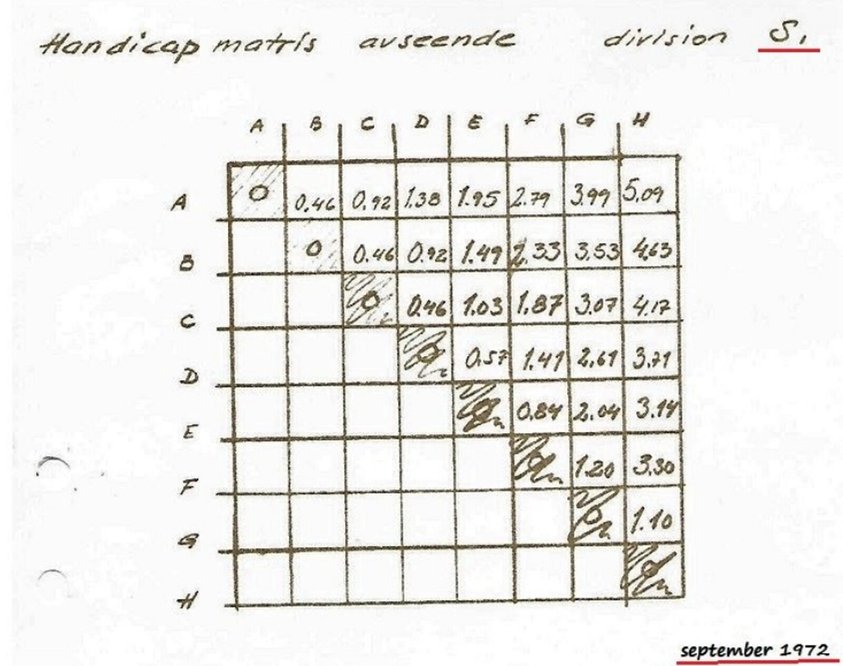 Handicap matris avseende division S.
A B C D E F G H
A 0 0.46 0.92 1.38 1.95 2.79 3.99 5.09
B 0 0.46 0.92 1.49 2.33 3.53 4.63
C 0 0.46 1.03 1.87 3.07 4.17
D 0 0.57 1.41 2.61 3.71
E 0 0.84 2.04 3.14
F 0 1.20 3.30
G 0 1.10
H 0
september 1972